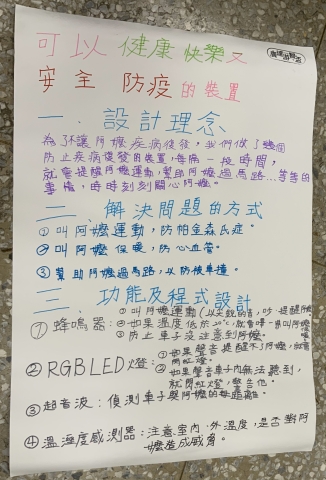 可以健康快樂又
安全 防疫的裝置
一、設計理念
為了不讓阿嬤疾病復發,我們做了這個
防止疾病復發的裝置,每隔一段時間,
就會提醒阿嬤運動,幫助阿嬤過馬路...等等的
事情,時時刻刻關心阿嬤。
二、解決問題的方式
①叫阿嬤運動,防帕金森氏症。
②叫阿嬤保暖,防心血管。
③幫助阿嬤過馬路,以防被車撞。
三、功能及程式設計
①蜂鳴器:①叫阿嬤運動(以尖銳的音,吵提醒
②如果溫度低於20℃,就會嗶,叫阿嬤
③防止車子沒注意到阿嬤。
②RGBLED燈:①如果聲音提醒不了阿嬤,就會
閃紅燈。
②如果聲音車子內無法聽到,
就閃紅燈,警告他。
③超音波:偵測車子與阿嬤的距離。
④溫濕度感測器:注意室內、外溫度,是否對阿
嬤造成威脅。